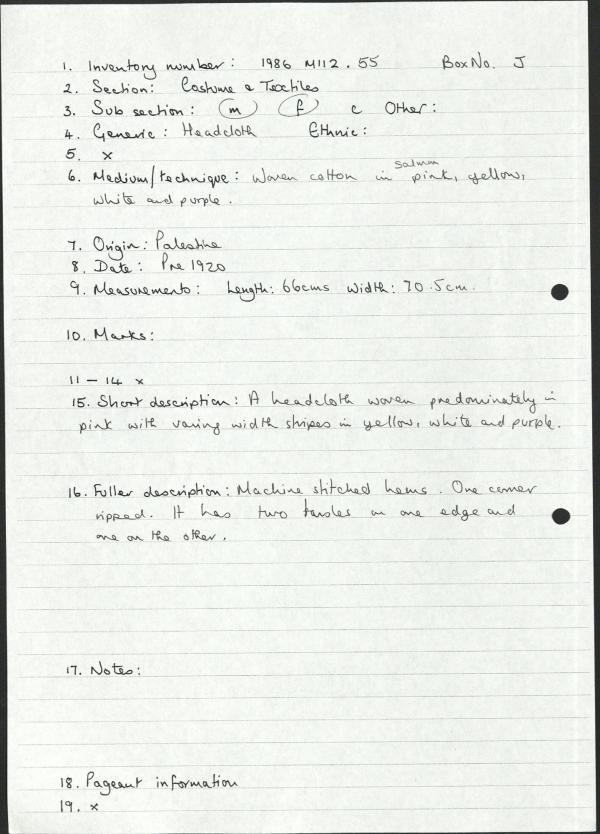 1. Inventory number: 1986 M112.55 Box No. J
2. Section: Costume & Textiles
3. Sub section: m f c Other:
4. Generic: Headcloth Ethnic:
5. x
6. Medium/technique: Woven cotton in salmon pink, yellow,
white and purple.
7. Origin: Palestine
8. Date: Pre 1920
9. Measurements: Length: 66cms Width: 70.5cm.
10. Marks:
11 – 14 x
15. Short description: A headcloth woven predominately in
pink with varing width stripes in yellow, white and purple.
16. Fuller description: Machine stitched hems. One corner
ripped. It has two tassles on one edge and
one on the other.
17. Notes:
18. Pageant information
19. x